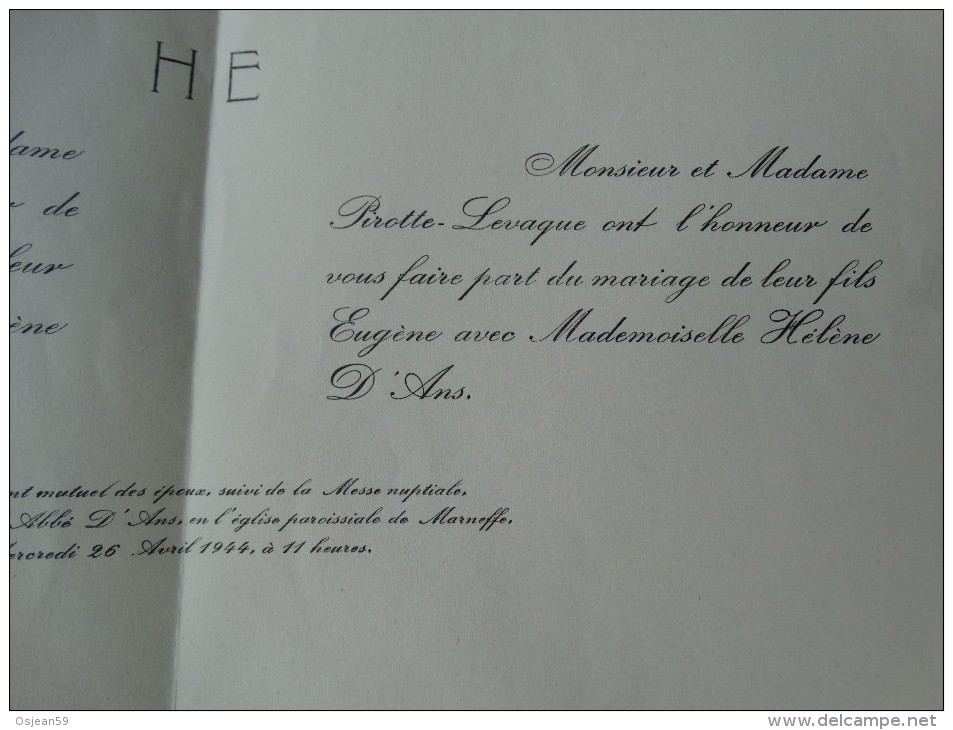 H E
Madame
de
leur
Monsieur et Madame
Pirotte-Levaque ont l'honneur de
vous faire part du mariage de leur fils
Eugène avec Mademoiselle Hélène
D'Ans.
mutuel des époux, suivi de la Messe nuptiale,
Abbé D'Ans, en l'église paroissiale de Marneffe,
Mercredi 26 Avril 1944, à 11 heures.
Osjean59
www.delcampe.net